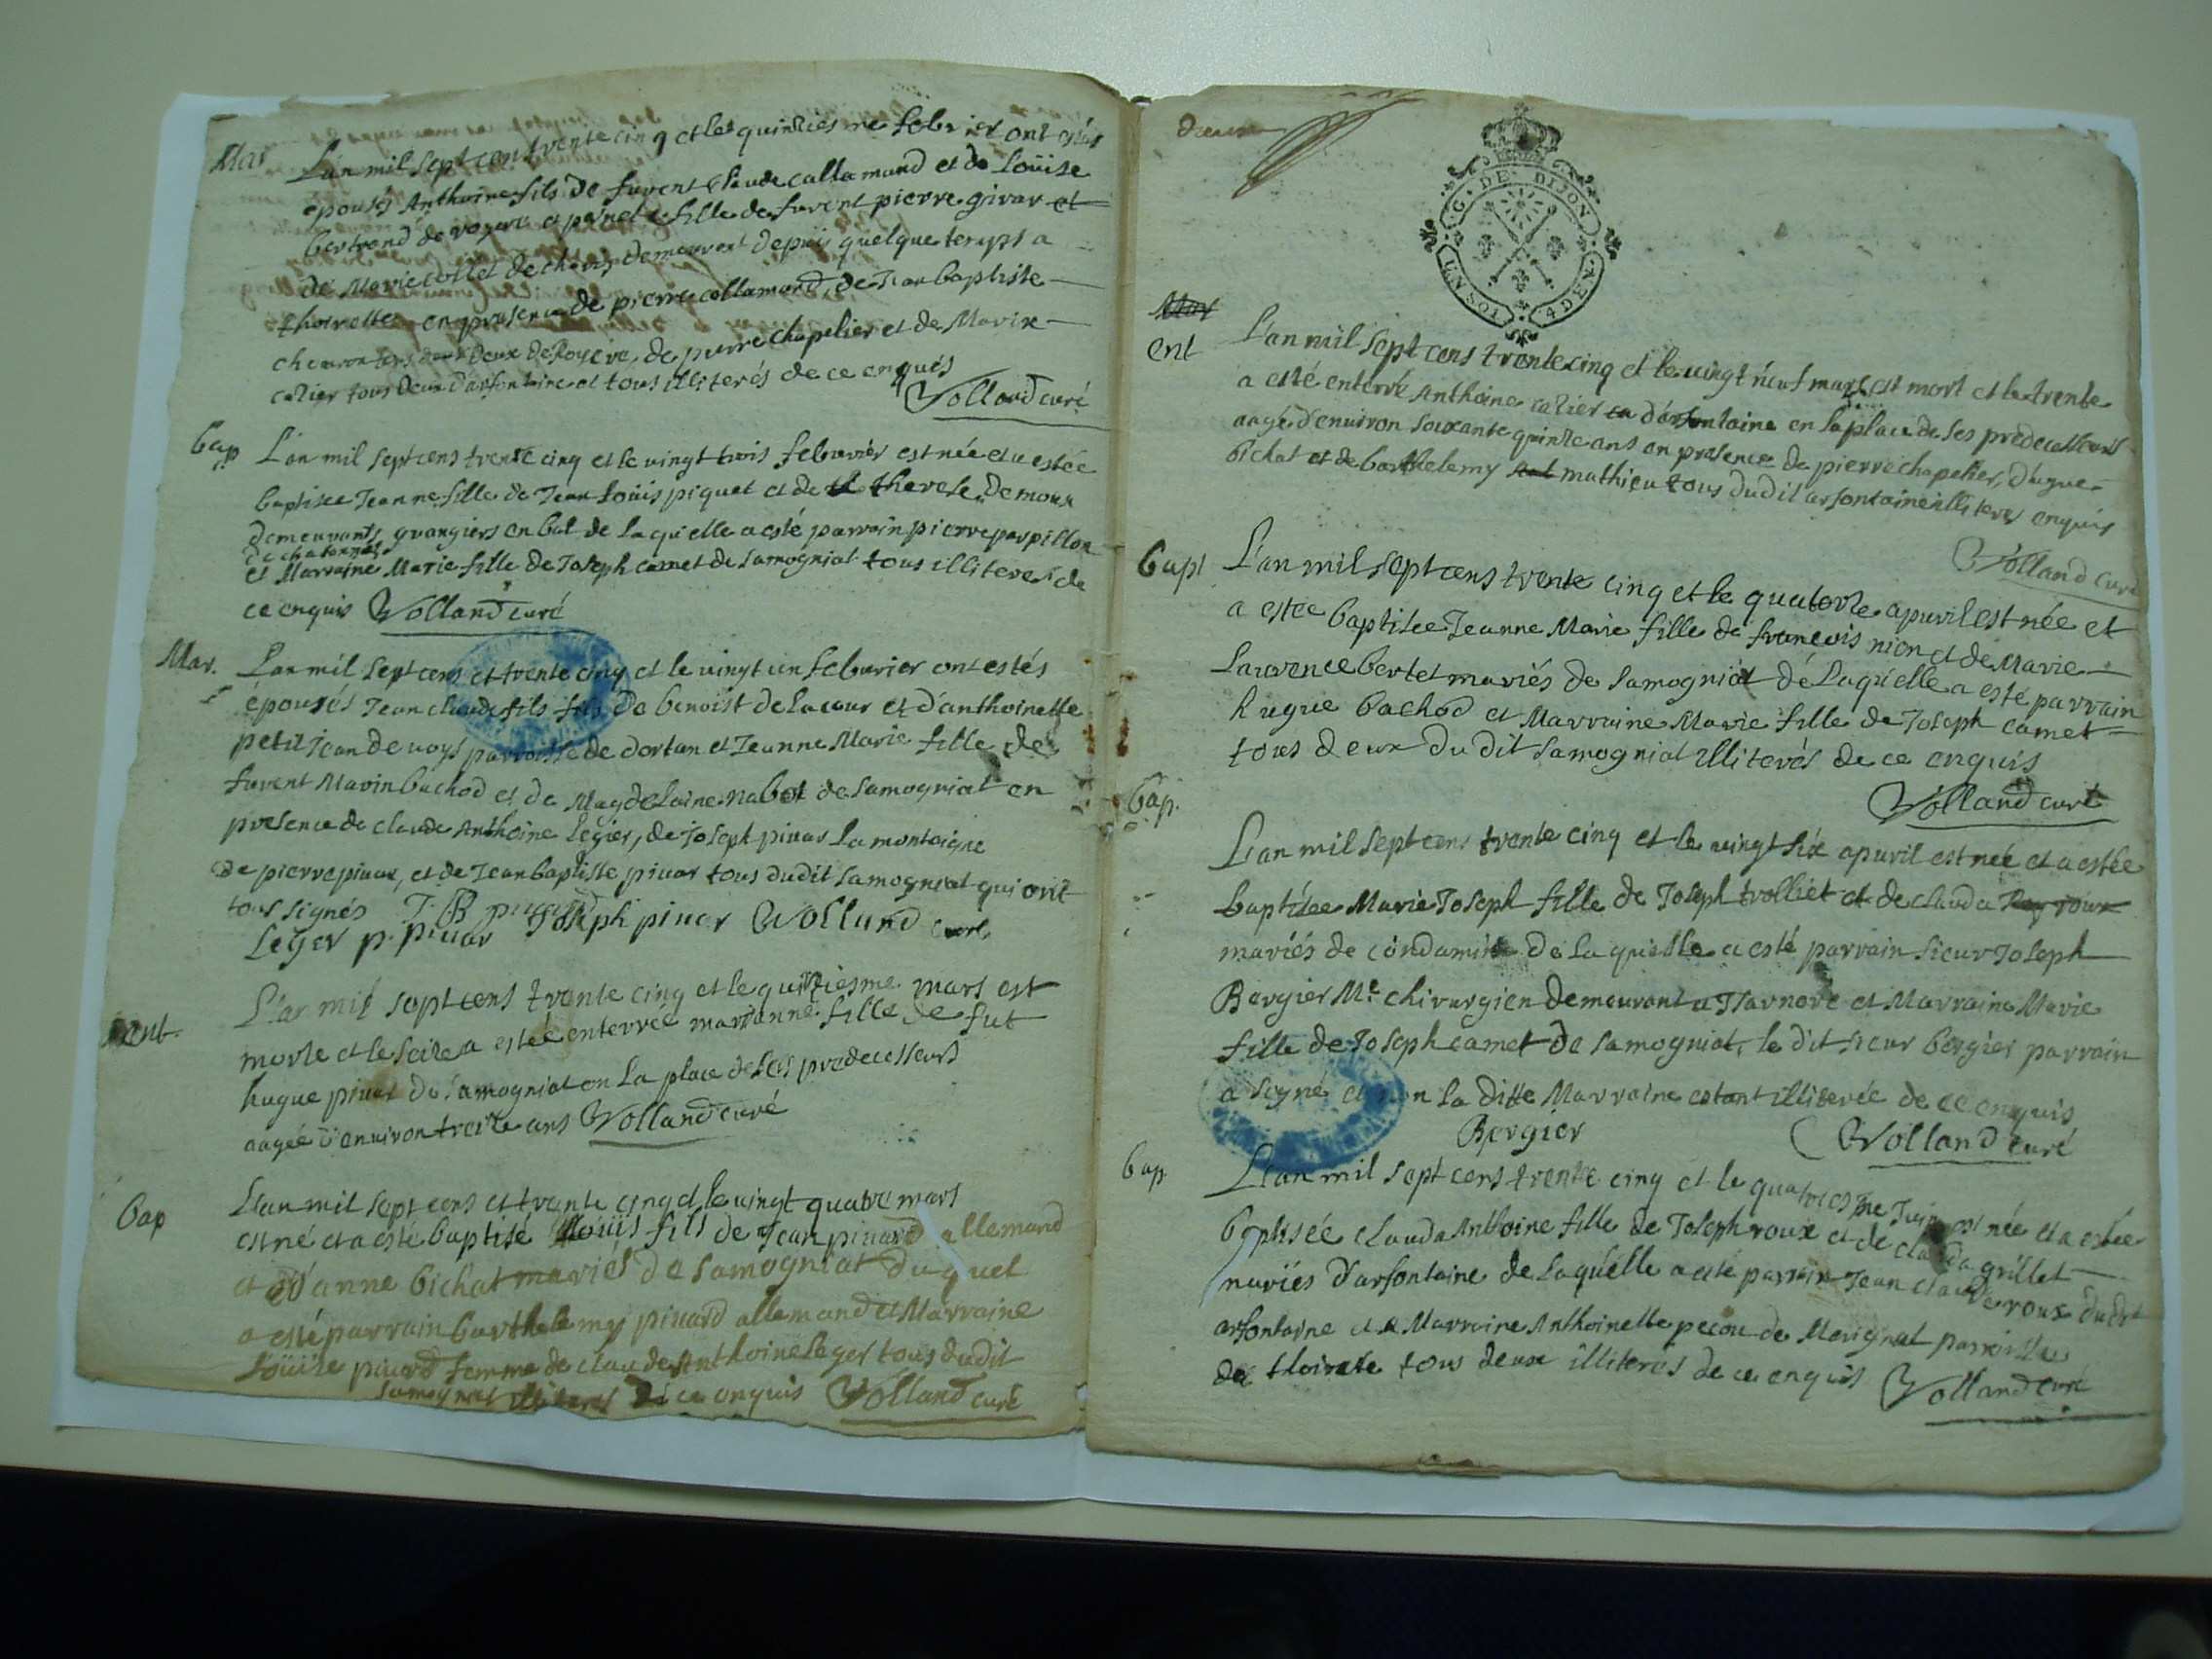 Mar
L'an mil sept cens trente cinq et le quinziesme febvrier ont estés
epousés Anthoine fils de furent Claude callamand et de Loüise
bertrand de royere et pernete fille de furent pierre girar et
de Marie collet de demeurent depuis quelque temps a
thoirette en presence de pierre collamand, de Jean baptiste
deux de Royere, de pierre chapelier et de Marix
cazier tous deux d'arfontaine et tous illiterés de ce enquis
Volland curé
bap
L'an mil sept cens trente cinq et le vingt trois febuvrier est née et a estée
baptisee Jeanne fille de Jean Loüis piquet et de therese demoux
demeurants grangiers en bat de laquelle a esté parrain pierre parpillon
de chatonnas
et Marraine Marie fille de Joseph camet de Samogniat tous illiteres de
ce enquis Volland curé
Mar.
L'an mil sept cens et trente cinq et le vingt un febvrier ont estés
épousés Jean claude fils fils de benoist delacour et d'anthoinette
petitjean de uoys parroisse de dortan et Jeanne Marie fille de
furent Marin bachod et de Magdelaine nabot de Samogniat en
presence de claude Anthoine legier, de joseph pivar la montaigne
de pierre pivar, et de Jean baptiste pivar tous dudit Samogniat qui ont
tous signés J. B pivard
Leger p. pivar Joseph pivar Volland curé
ent.
L'an mil sept cens trente cinq et le quinziesme mars est
morte et le seize a estée enterrée marianne fille de fut
hugue pivar de Samogniat en la place de ses predecesseurs
aagée d'environ treize ans Volland curé
bap
L'an mil sept cens et trente cinq et le vingt quatre mars
est né et a esté baptisé Loüis fils de Jean pivard allemand
et d'anne bichat mariés de Samogniat duquel
a esté parrain barthelemy pivard allemand et Marraine
Loüize pivard femme de claude Anthoine leger tous dudit
Samogniat illiterés de ce enquis Volland curé
G. DE DIJON
UN SOL 4 DEN.
Mar
ent
L'an mil sept cens trente cinq et le vingt neuf mars est mort et le trente
a esté enterré Anthoine cazier d'arfontaine en la place de ses predecesseurs
aagé d'environ soixante quinze ans en presence de pierre chapelier, d'ugue
bichat et de barthelemy mathieu tous dudit arfontaine illiteres enquis
Volland curé
bapt
L'an mil sept cens trente cinq et le quatorze apuril est née et
a estée baptisee Jeanne Marie fille de francois nion et de Marie
Laurence bertet mariés de Samogniat de Laquelle a esté parrain
hugue bachod et Marraine Marie fille de Joseph camet
tous deux du dit Samogniat illiterés de ce enquis
Volland curé
bap.
L'an mil sept cens trente cinq et le vingt six apuril est née et a estée
baptisee Marie Joseph fille de Joseph trolliet et de clauda Roy roux
mariés de condamine de la quelle a esté parrain sieur Joseph
Bergier Me. chirurgien demeurant a Tharnore et Marraine Marie
fille de Joseph camet de Samogniat, le dit sieur bergier parrain
a signé et non la ditte Marraine estant illiterée de ce enquis
Bergier Volland curé
bap
L'an mil sept cens trente cinq et le quatriesme Juin est née et a estée
baptisée clauda Anthoine fille de Joseph roux et de clauda grillet
mariés d'arfontaine de laquelle a esté parrain Jean claude roux dudit
arfontaine et Marraine Anthoinette pecou de Marignat parroisse
de thoirette tous deux illiterés de ce enquis Volland curé